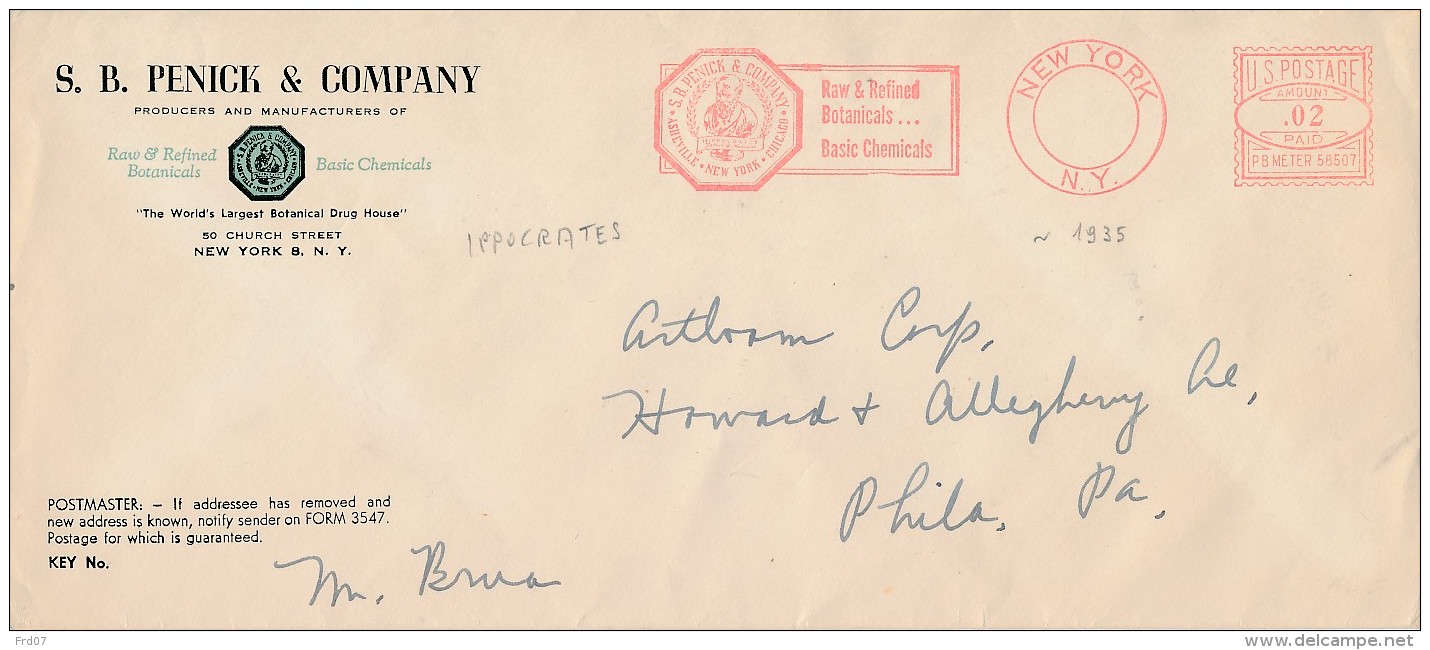 S. B. PENICK & COMPANY
PRODUCERS AND MANUFACTURERS OF
Raw & Refined
Botanicals
S. B. PENICK & COMPANY
ASHEVILLE • NEW YORK • CHICAGO
Basic Chemicals
"The World's Largest Botanical Drug House"
50 CHURCH STREET
NEW YORK 8, N. Y.
S. B. PENICK & COMPANY
ASHEVILLE • NEW YORK • CHICAGO
Raw & Refined
Botanicals ...
Basic Chemicals
NEW YORK
N.Y.
U.S. POSTAGE
AMOUNT
.02
PAID
PB METER 58507
IPPOCRATES
~ 1935
Artloom Corp.
Howard & Allegheny Ave,
Phila. Pa.
POSTMASTER: – If addressee has removed and
new address is known, notify sender on FORM 3547.
Postage for which is guaranteed.
KEY No.
Mr. Brua
Frd07
www.delcampe.net